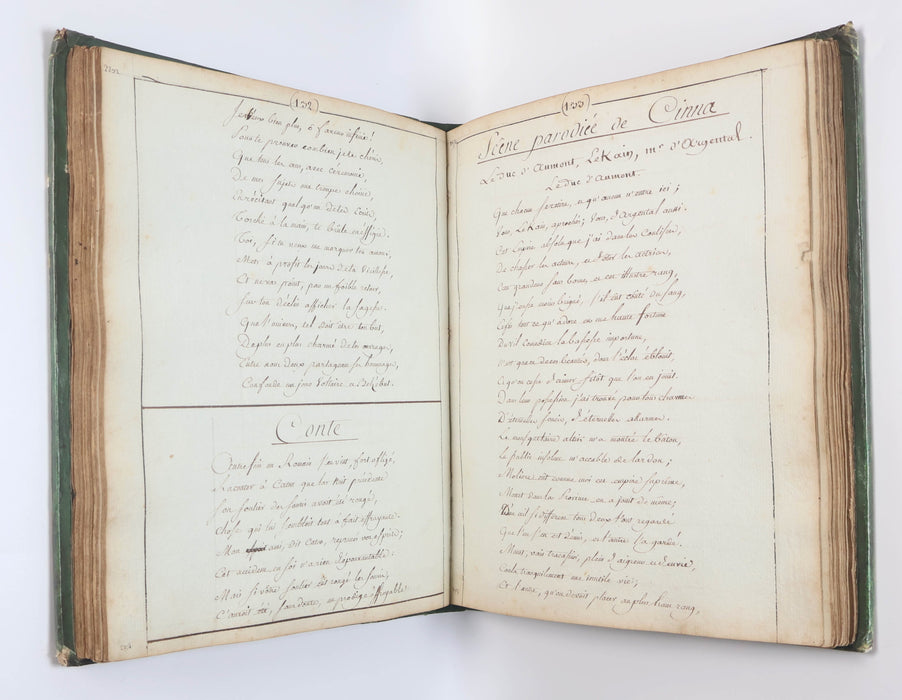 132
Je veux bien plus, ô faveur infinie!
Pour te prouver combien je te chéris,
Que tous les ans, avec cérémonie,
De mes sujets une troupe choisie,
En récitant quelqu'un de tes
Torche à la main, te brûle en effigie.
Toi, si tu veux me marquer ton amour,
Mets à profit les jours de ta vieillesse,
Et ne vas point, par un foible retour,
Sur ton déclin afficher la sagesse.
Que l'univers, tel doit être ton but,
De plus en plus charmé de tes ouvrages,
Entre nous deux partageant ses hommages,
Confonde un jour Voltaire et Belzébut.
Conte
Certain Romain vint, fort afligé,
Raconter à Caton que la nuit précédente
Son soulier des souris avoit été rongé,
Chose qui lui sembloit tout à fait effrayante.
Mon ami, dit Caton, reprenez vos esprits;
Cet accident en soi n'a rien d'épouvantable:
Mais si votre soulier eût rongé les souris,
C'auroit été, sans doute, un prodige effroyable.
133
Scène parodiée de Cinna
Le Duc d'Aumont, LeKain, mr d'Argental.
Le Duc d'Aumont.
Que chacun se retire, et qu'aucun n'entre ici;
Vous, LeKain, aprochez; Vous, d'Argental aussi.
Cet Empire absolu que j'ai dans les coulisses,
De chasser les acteurs, et d'ôter les actrices,
Cette grandeur sans borne, et cet illustre rang,
Que j'eusse moins brigué, s'il eut coûté du sang,
Enfin tout ce qu'adore en ma haute fortune
Du vil comédien la bassesse importune,
N'est que de ces beautés, dont l'éclat éblouit,
Et qu'on cesse d'aimer sitôt que l'on en jouit.
Dans leur possession j'ai trouvé pour tous charmes
D'éternels soucis, d'éternelles alarmes.
Le mousquetaire altier m'a montré le bâton,
Le public insolent m'accable de lardon;
Molière eut comme moi cet empire suprême,
Monet dans la Province en a joui de même;
D'un œil si différent tous deux l'ont regardé
Que l'un s'en est démis, et l'autre l'a gardé.
Monet, vain tracassier, plein d'aigreur et d'envie,
Coula tranquilement une inutile vie;
Et l'autre, qu'on devoit placer au plus haut rang,